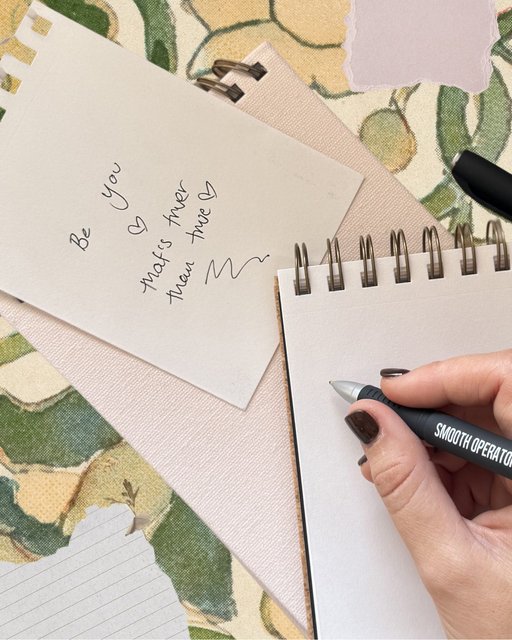 Be you ♡
that's truer
than true ♡
SMOOTH OPERATOR